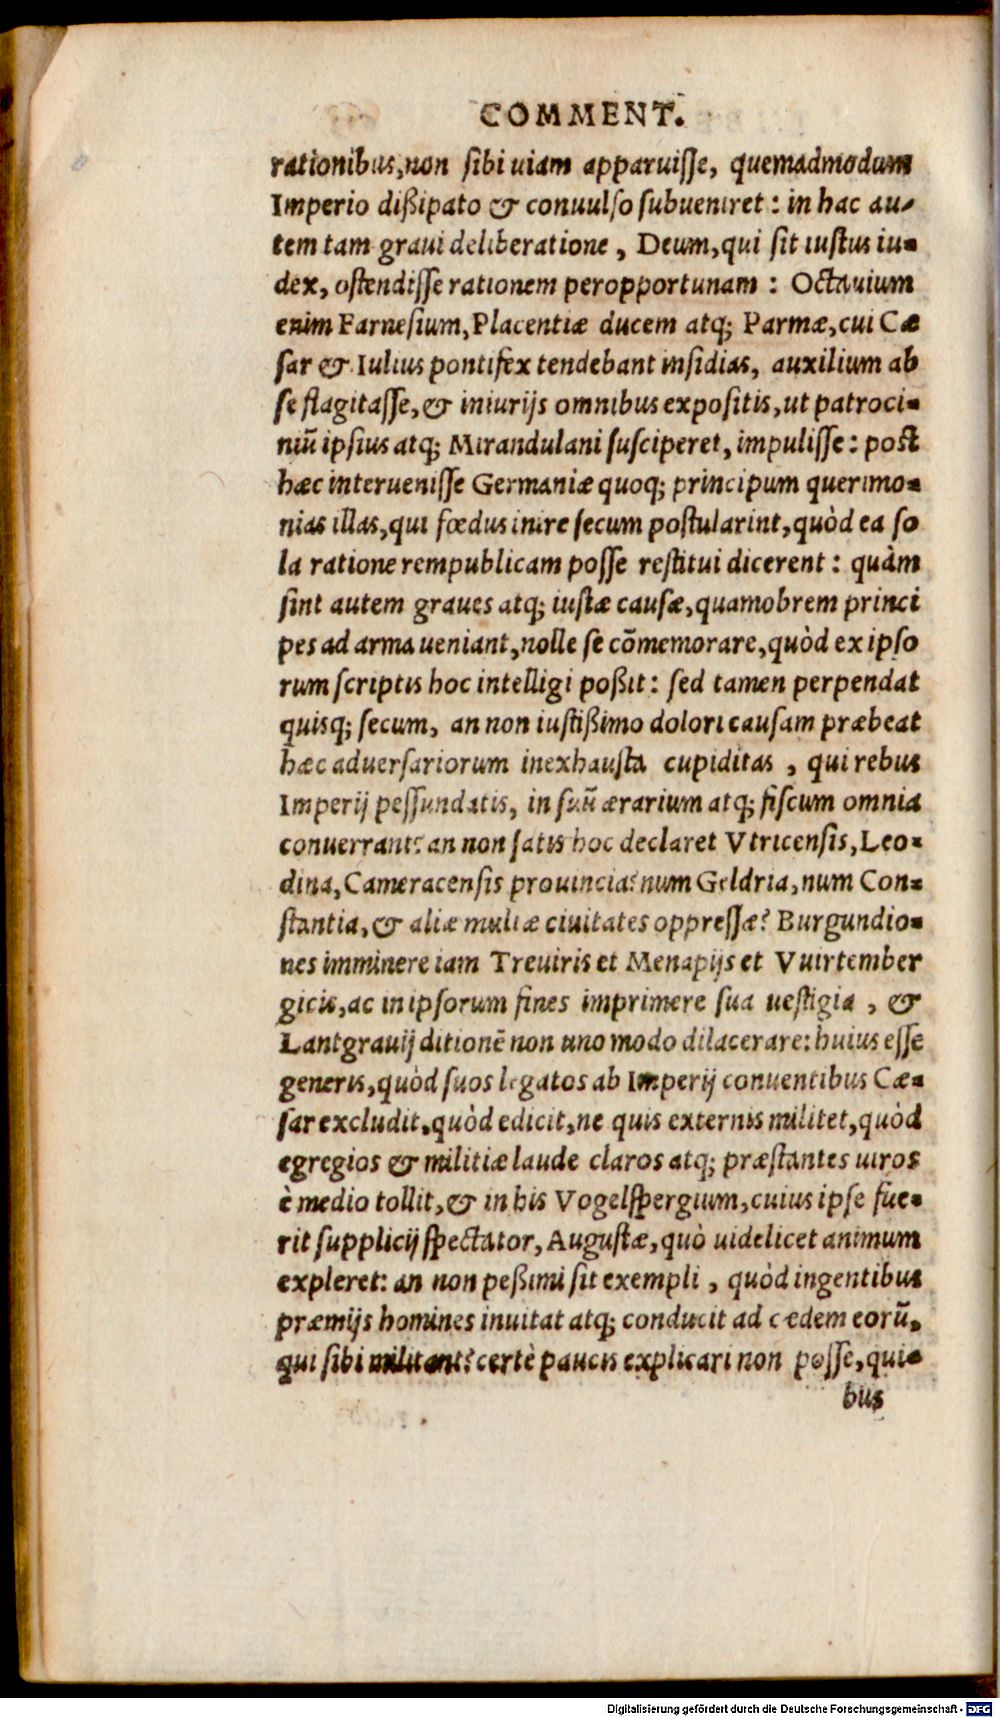 COMMENT.
rationibus, non sibi uiam apparuisse, quemadmodum
Imperio dißipato & conuulso subueniret: in hac au-
tem tam graui deliberatione, Deum, qui sit iustus iu-
dex, ostendisse rationem peropportunam: Octauium
enim Farnesium, Placentiæ ducem atq; Parmæ, cui Cæ
sar & Iulius pontifex tendebant insidias, auxilium ab
se flagitasse, & iniurijs omnibus expositis, ut patroci-
niũ ipsius atq; Mirandulani susciperet, impulisse: post
hæc interuenisse Germaniæ quoq; principum querimo-
nias illas, qui fœdus inire secum postularint, quòd ea so
la ratione rempublicam posse restitui dicerent: quàm
sint autem graues atq; iustæ causæ, quamobrem princi
pes ad arma ueniant, nolle se cõmemorare, quòd ex ipso
rum scriptis hoc intelligi poßit: sed tamen perpendat
quisq; secum, an non iustißimo dolori causam præbeat
hæc aduersariorum inexhausta cupiditas, qui rebus
Imperij pessundatis, in suũ ærarium atq; fiscum omnia
conuerrant? an non satis hoc declaret Vtricensis, Leo-
dina, Cameracensis prouincia? num Geldria, num Con-
stantia, & aliæ multæ ciuitates oppressæ? Burgundio-
nes imminere iam Treuiris et Menapijs et Vuirtember
gicis, ac in ipsorum fines imprimere sua uestigia, &
Lantgrauij ditionẽ non uno modo dilacerare: huius esse
generis, quòd suos legatos ab Imperij conuentibus Cæ-
sar excludit, quòd edicit, ne quis externis militet, quòd
egregios & militiæ laude claros atq; præstantes uiros
è medio tollit, & in his Vogelspergium, cuius ipse fue-
rit supplicij spectator, Augustæ, quò uidelicet animum
expleret: an non peßimi sit exempli, quòd ingentibus
præmijs homines inuitat atq; conducit ad cædem eorũ,
qui sibi militant? certè paucis explicari non posse, qui-
bus
Digitalisierung gefördert durch die Deutsche Forschungsgemeinschaft - DFG